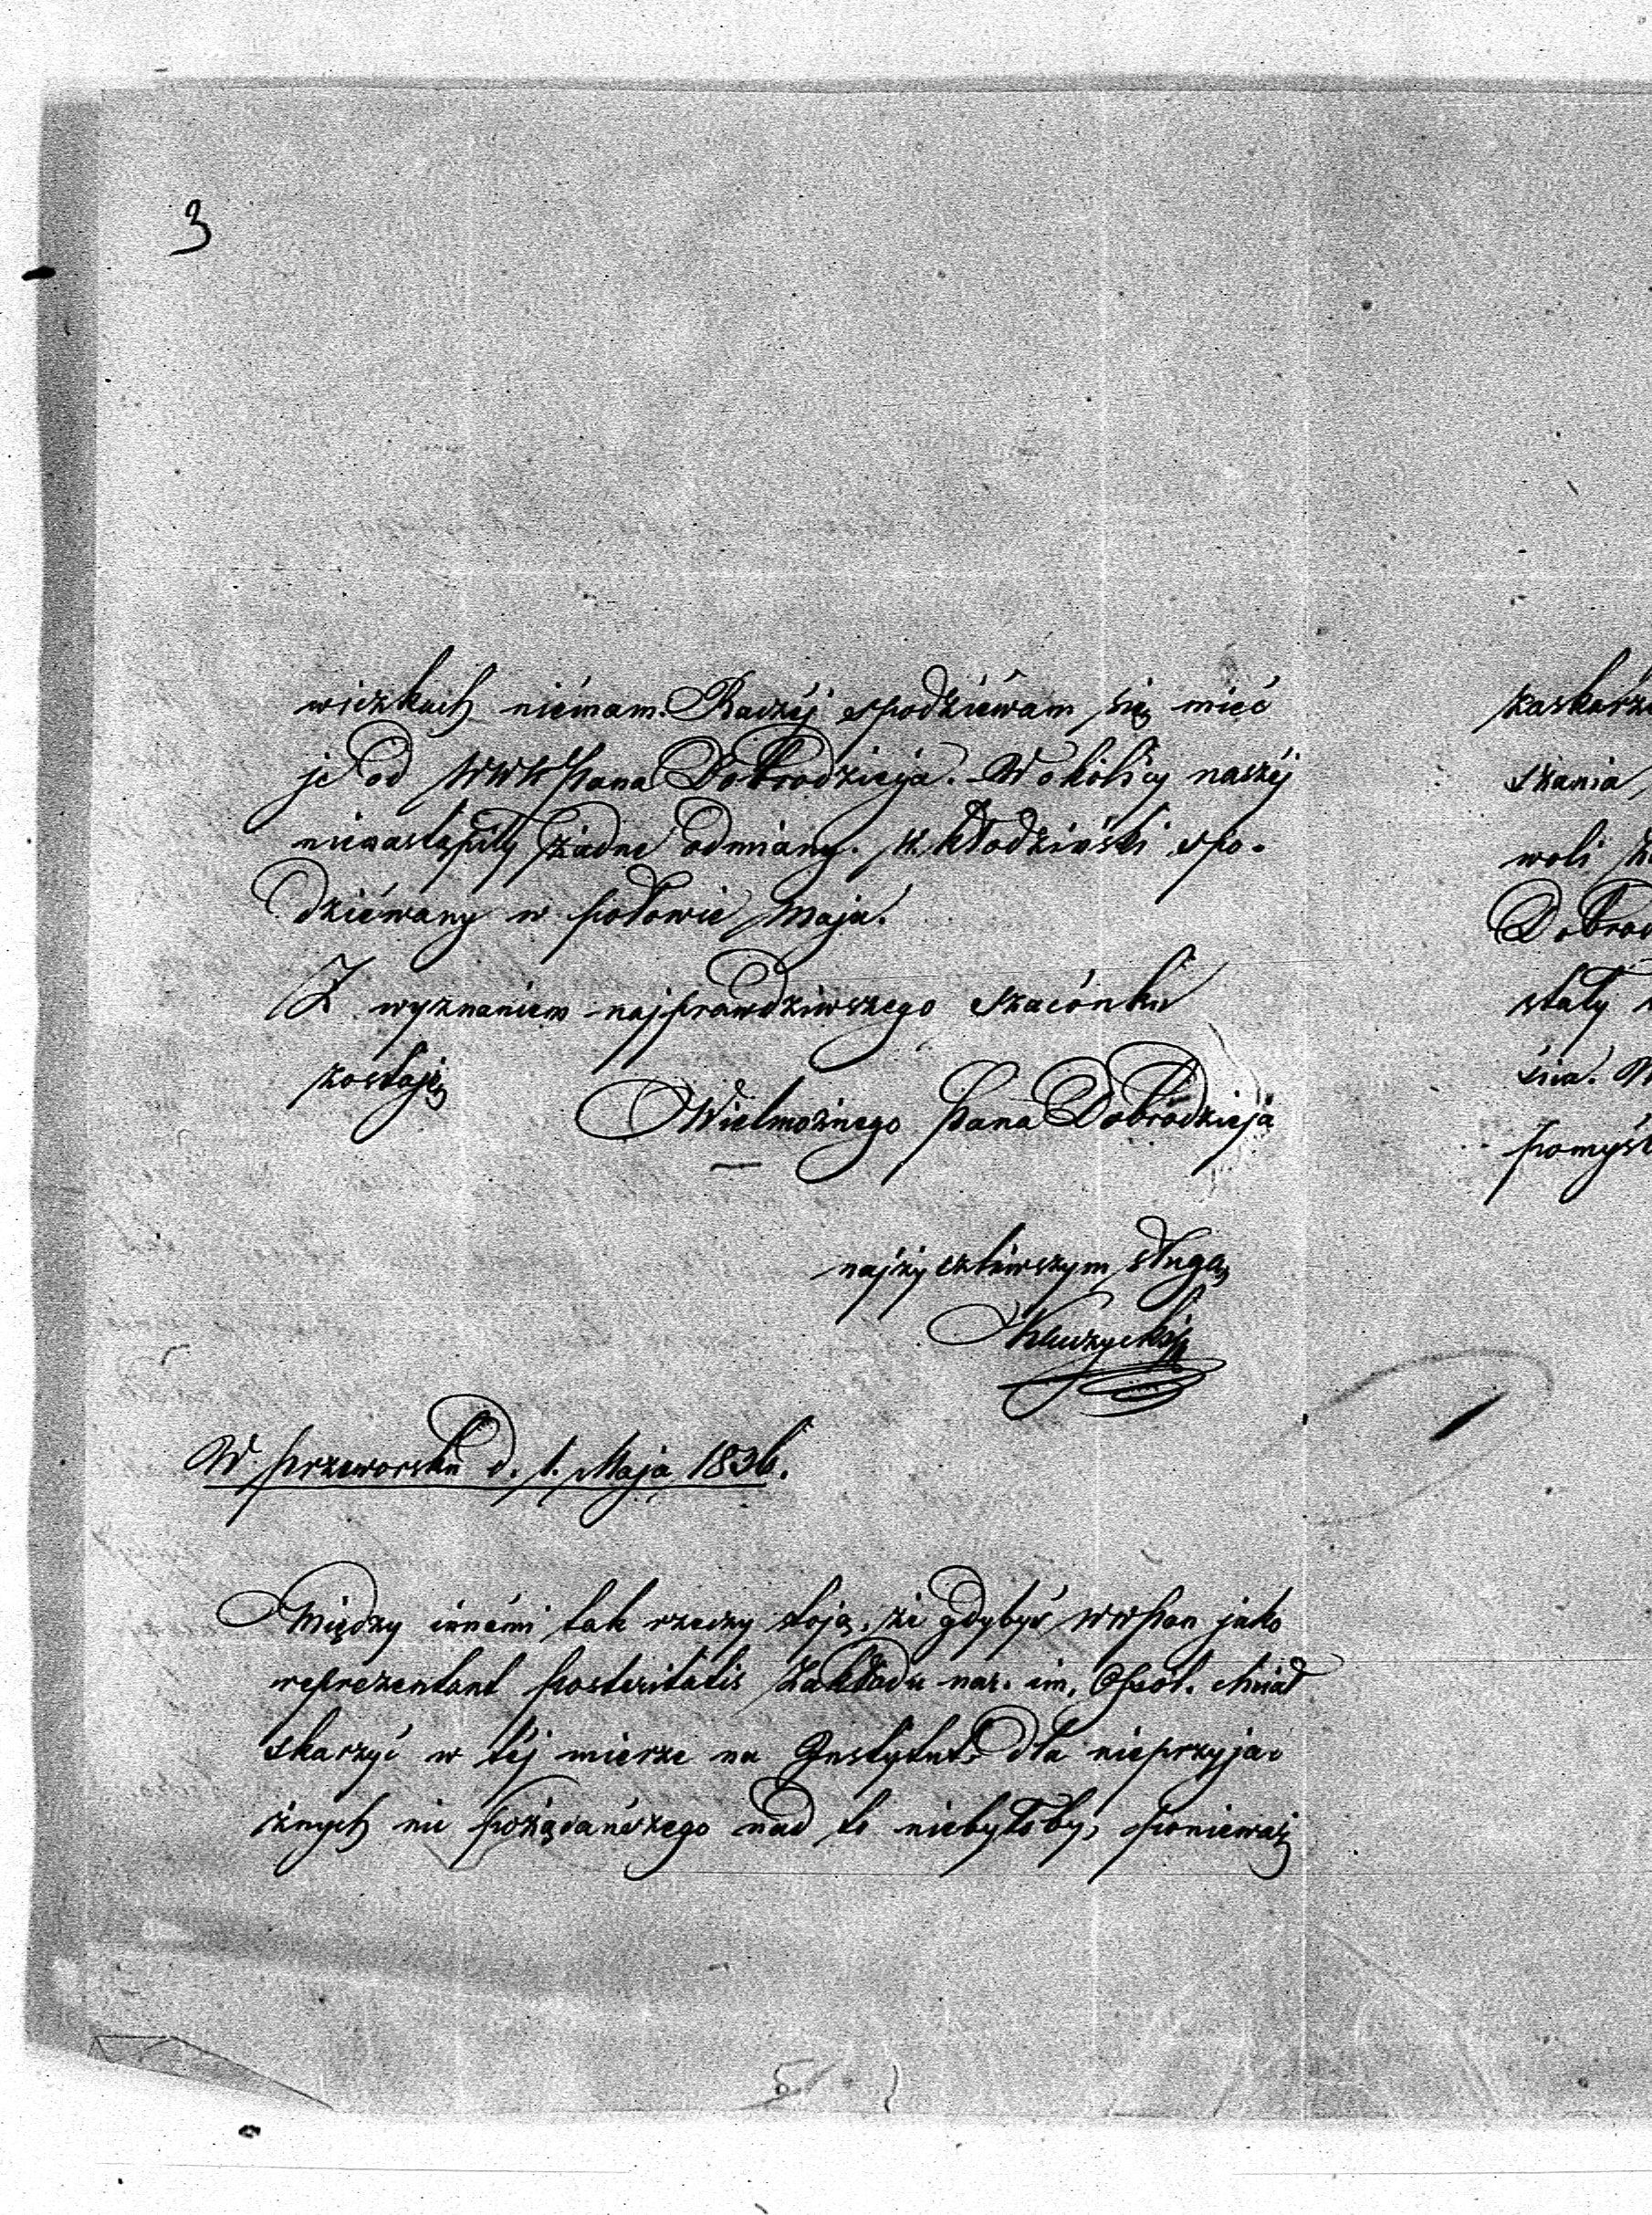 3
wiczkach niémam. Raczéj spodziéwam się mieć
je od WWP Pana Dobrodzieja. W okolicy naszéj
nienastąpiły żadne odmiany. K. Kłodziński spo-
dziéwany w połowie Maja.
Z wyznaniem najprawdziwszego szacónku
zostaję
Wielmożnego Pana Dobrodzieja
najżyczliwszym sługą
W Przeworsku d. 1. Maja 1836.
Między innémi tak rzeczy stoją, że gdybyś WWPan jako
reprezentant posteritatis Zakładu nar. im. Ossol. chciał
skarzyć w téj mierze na Instytut, dla nieprzyja-
znych nic pożądańszego nad to niebyłoby, ponieważ
zaskarże
szania,
woli
Dobrod
stały
śnia.
pomyśl